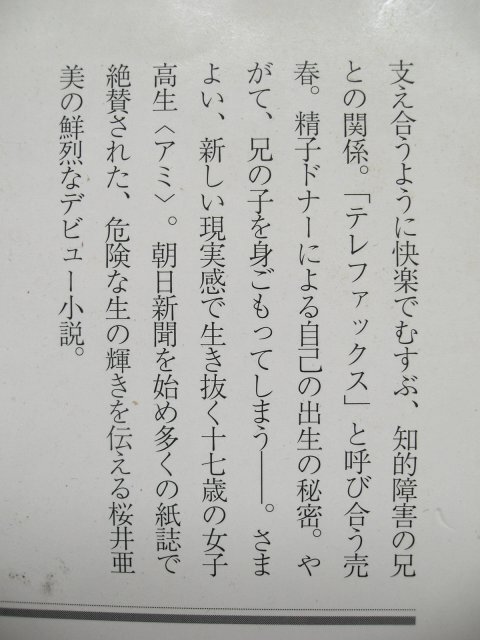 支え合うように快楽でむすぶ、知的障害の兄
との関係。「テレファックス」と呼び合う売
春。精子ドナーによる自己の出生の秘密。や
がて、兄の子を身ごもってしまう――。さま
よい、新しい現実感で生き抜く十七歳の女子
高生〈アミ〉。朝日新聞を始め多くの紙誌で
絶賛された、危険な生の輝きを伝える桜井亜
美の鮮烈なデビュー小説。